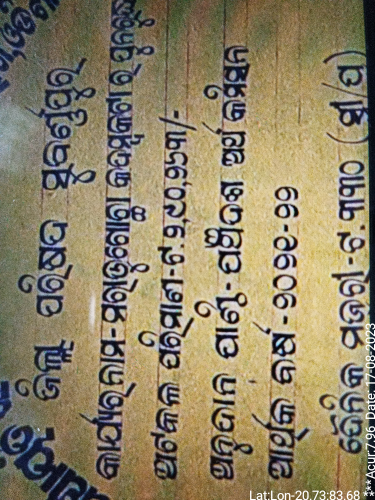 ଜିଲ୍ଲା ପରିଷଦ ସୁବର୍ଣ୍ଣପୁର
କାର୍ଯ୍ୟର ନାମ-
ଅଟକଳ ପରିମାଣ-ଟ.୨,୯୦,୨୬୩/-
ଅନୁଦାନ ପାଣ୍ଠି-ପଞ୍ଚଦଶ ଅର୍ଥ କମିଶନ
ଆର୍ଥିକ ବର୍ଷ -୨୦୨୧-୨୨
ଦୈନିକ ମଜୁରୀ-ଟ.୩୩୦ (ସ୍ତ୍ରୀ/ପୁ)
Lat:Lon-20.73:83.68
***Acur:7.96 Date: 17-08-2023